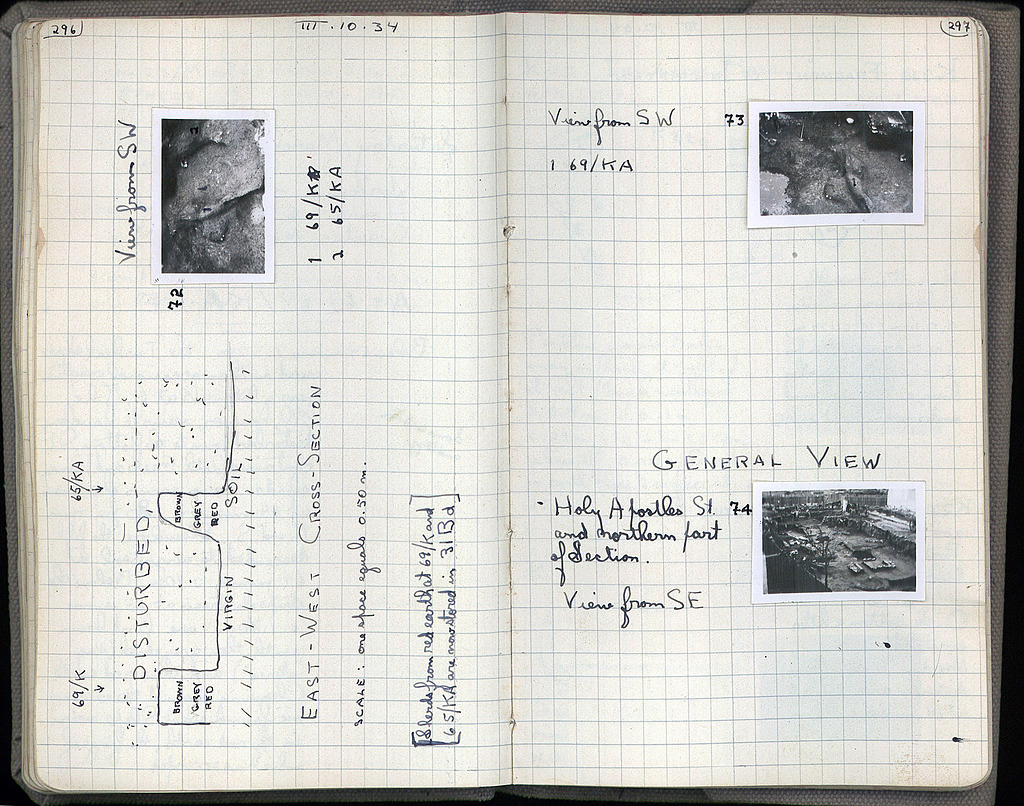 296
III.10.34
View from SW
72
1 69/KA
2 65/KA
69/K
65/KA
DISTURBED
BROWN
GREY
RED
BROWN
GREY
RED
VIRGIN SOIL
EAST-WEST CROSS-SECTION
SCALE: one space equals 0.50 m.
[Sherds from red earth at 69/K and
65/KA are now stored in 31 Bd]
297
View from SW 73
1 69/KA
GENERAL VIEW
Holy Apostles St. 74
and northern part
of Section.
View from SE